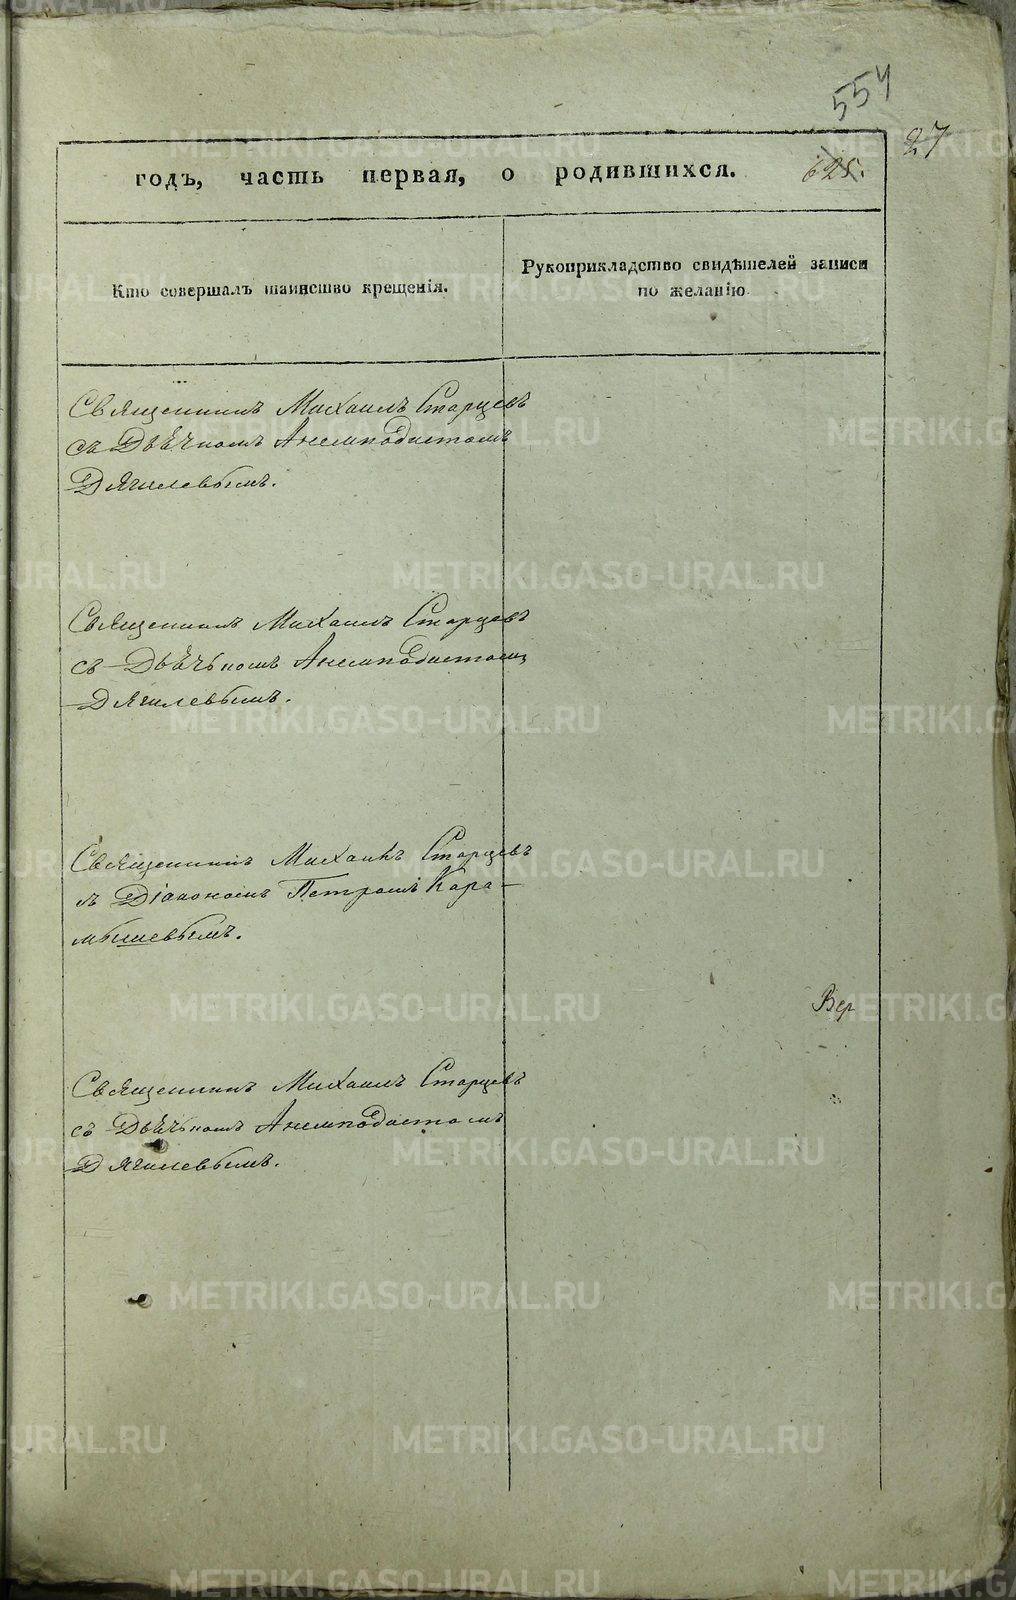 554
27
годъ, часть первая, о родившихся.
625.
Кто совершалъ таинство крещенія.
Рукоприкладство свидѣтелей записи
по желанію
Священникъ Михаилъ Старцевъ
съ Дьячкомъ Анемподистомъ
Дягилевымъ.
Священникъ Михаилъ Старцевъ
съ Дьячькомъ Анемподистомъ
Дягилевымъ.
Священникъ Михаилъ Старцевъ
съ Діакономъ Петромъ Кара-
мышевымъ.
Вер
Священникъ Михаилъ Старцевъ
съ Дьячькомъ Анемподистомъ
Дягилевымъ.
METRIKI.GASO-URAL.RU